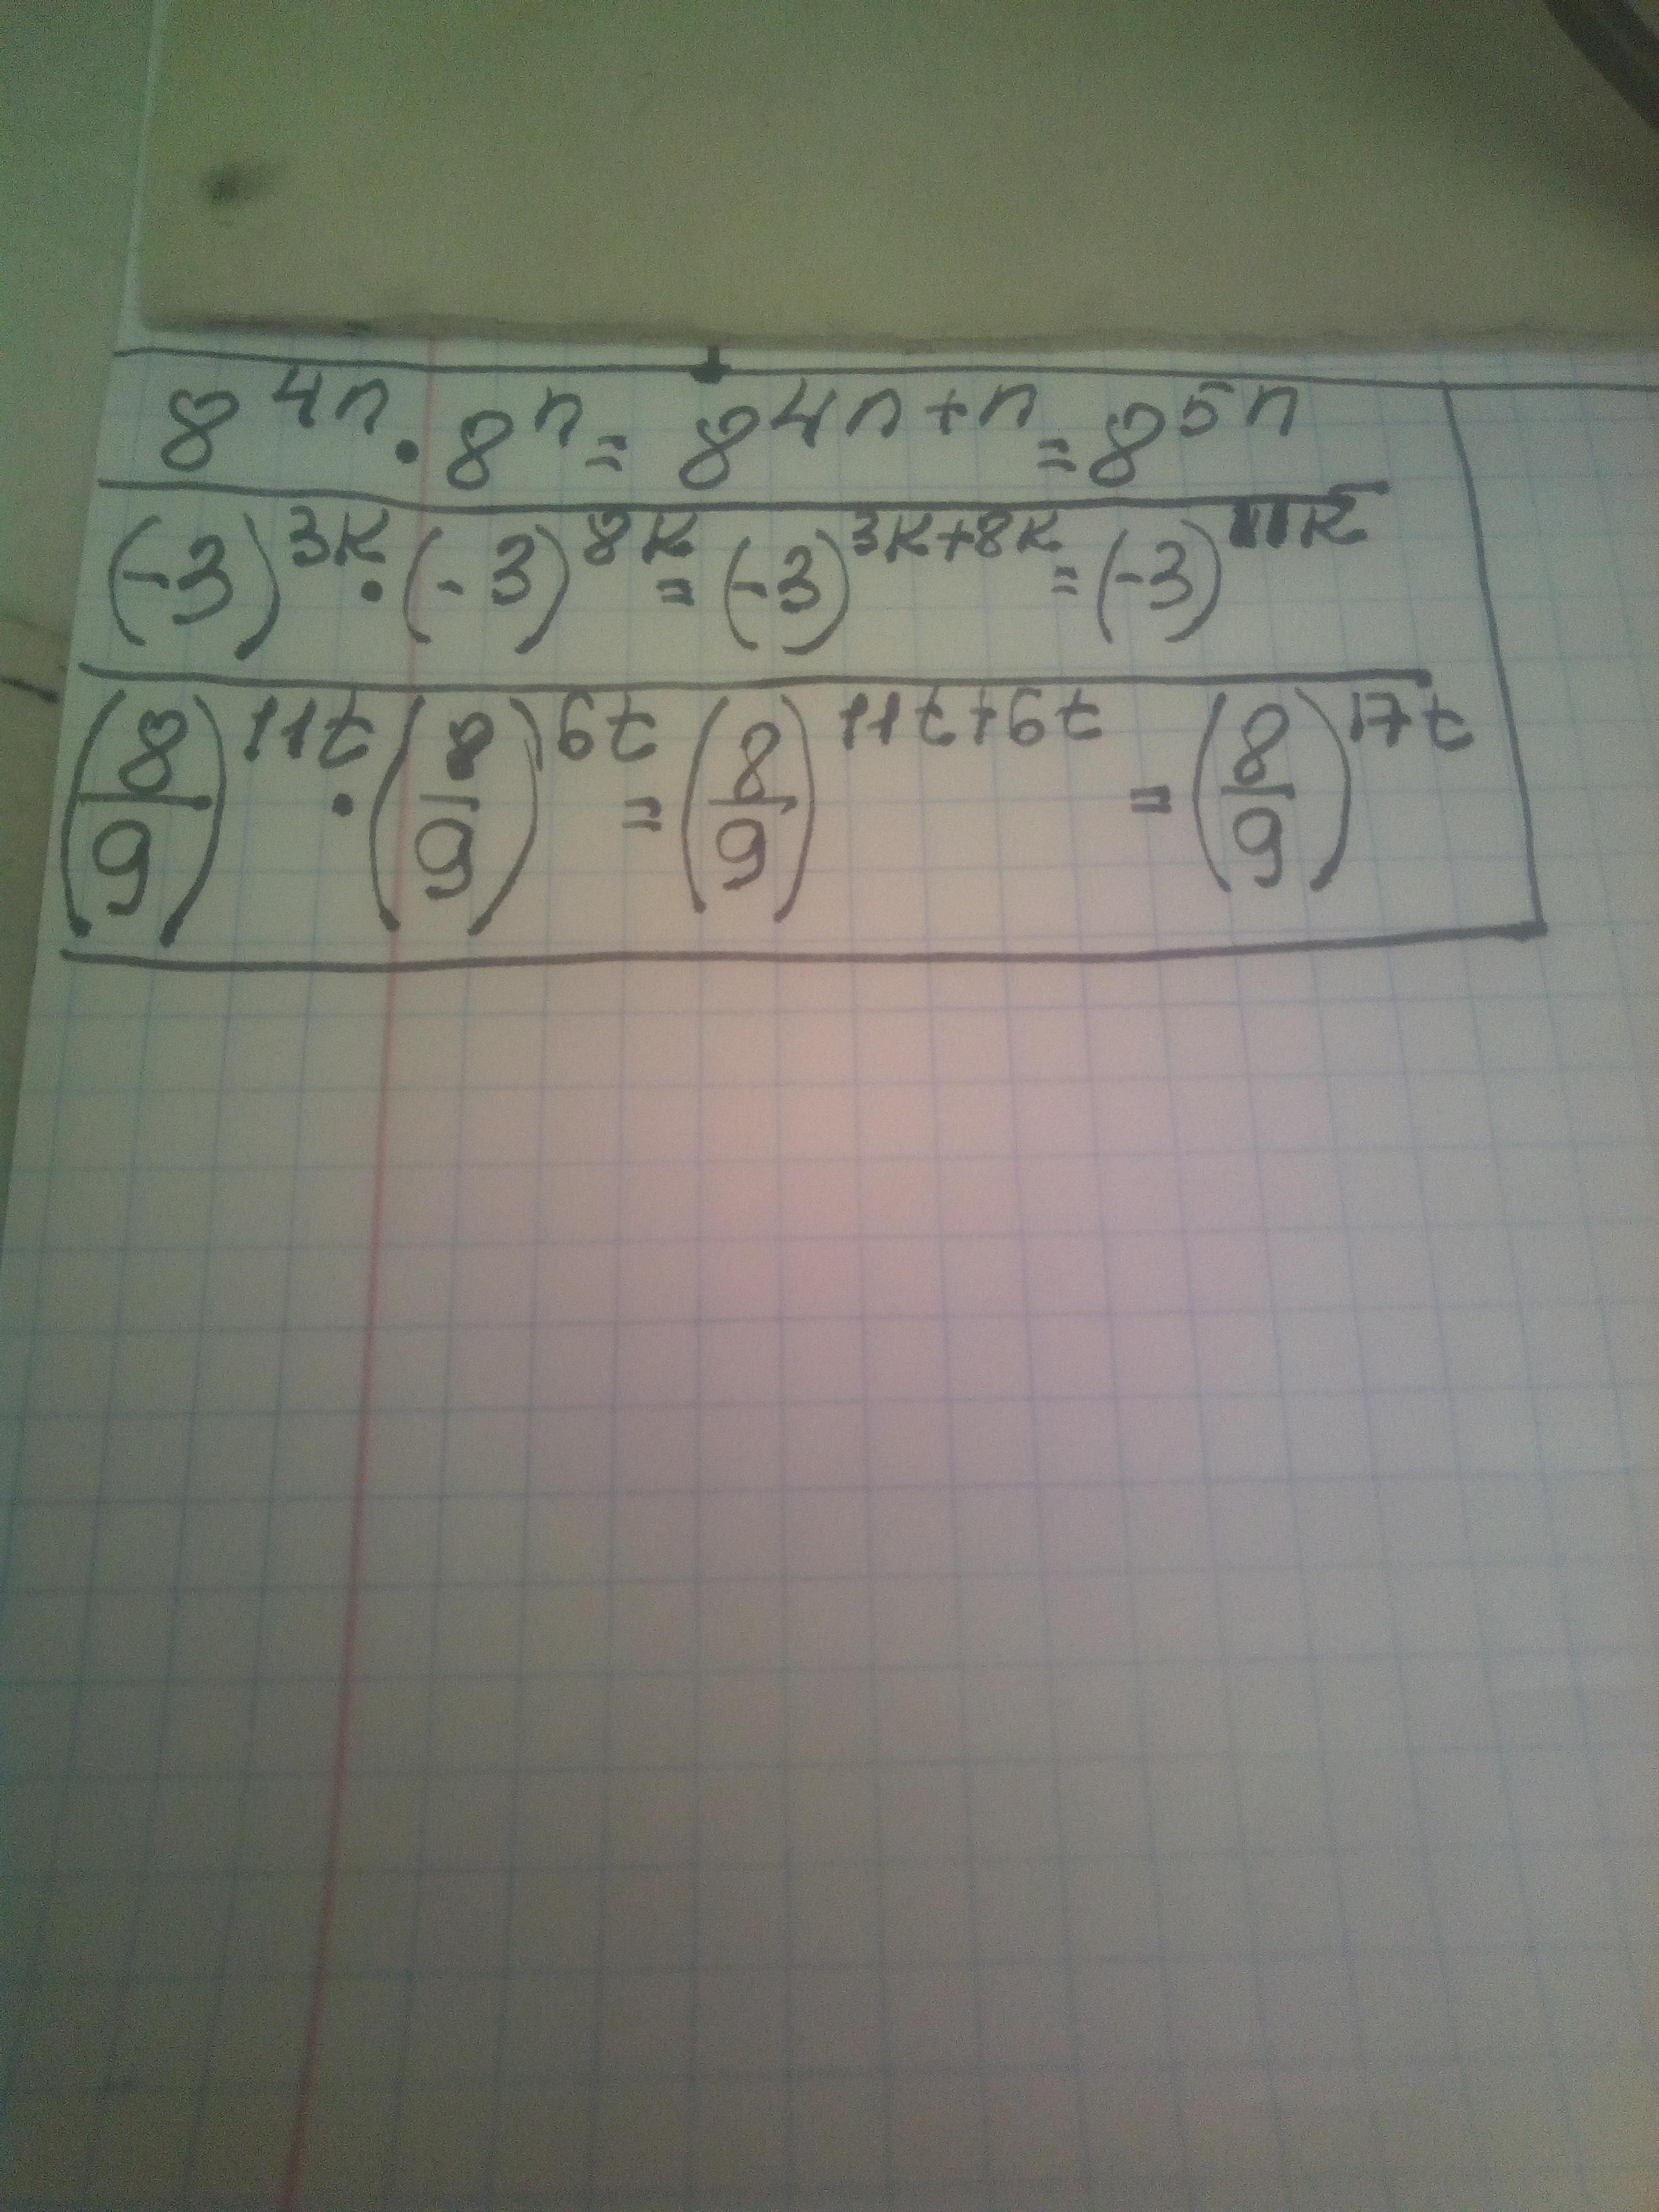 8^{4n} · 8^{n} = 8^{4n+n} = 8^{5n}
(-3)^{3k} · (-3)^{8k} = (-3)^{3k+8k} = (-3)^{11k}
(8/9)^{11t} · (8/9)^{6t} = (8/9)^{11t+6t} = (8/9)^{17t}